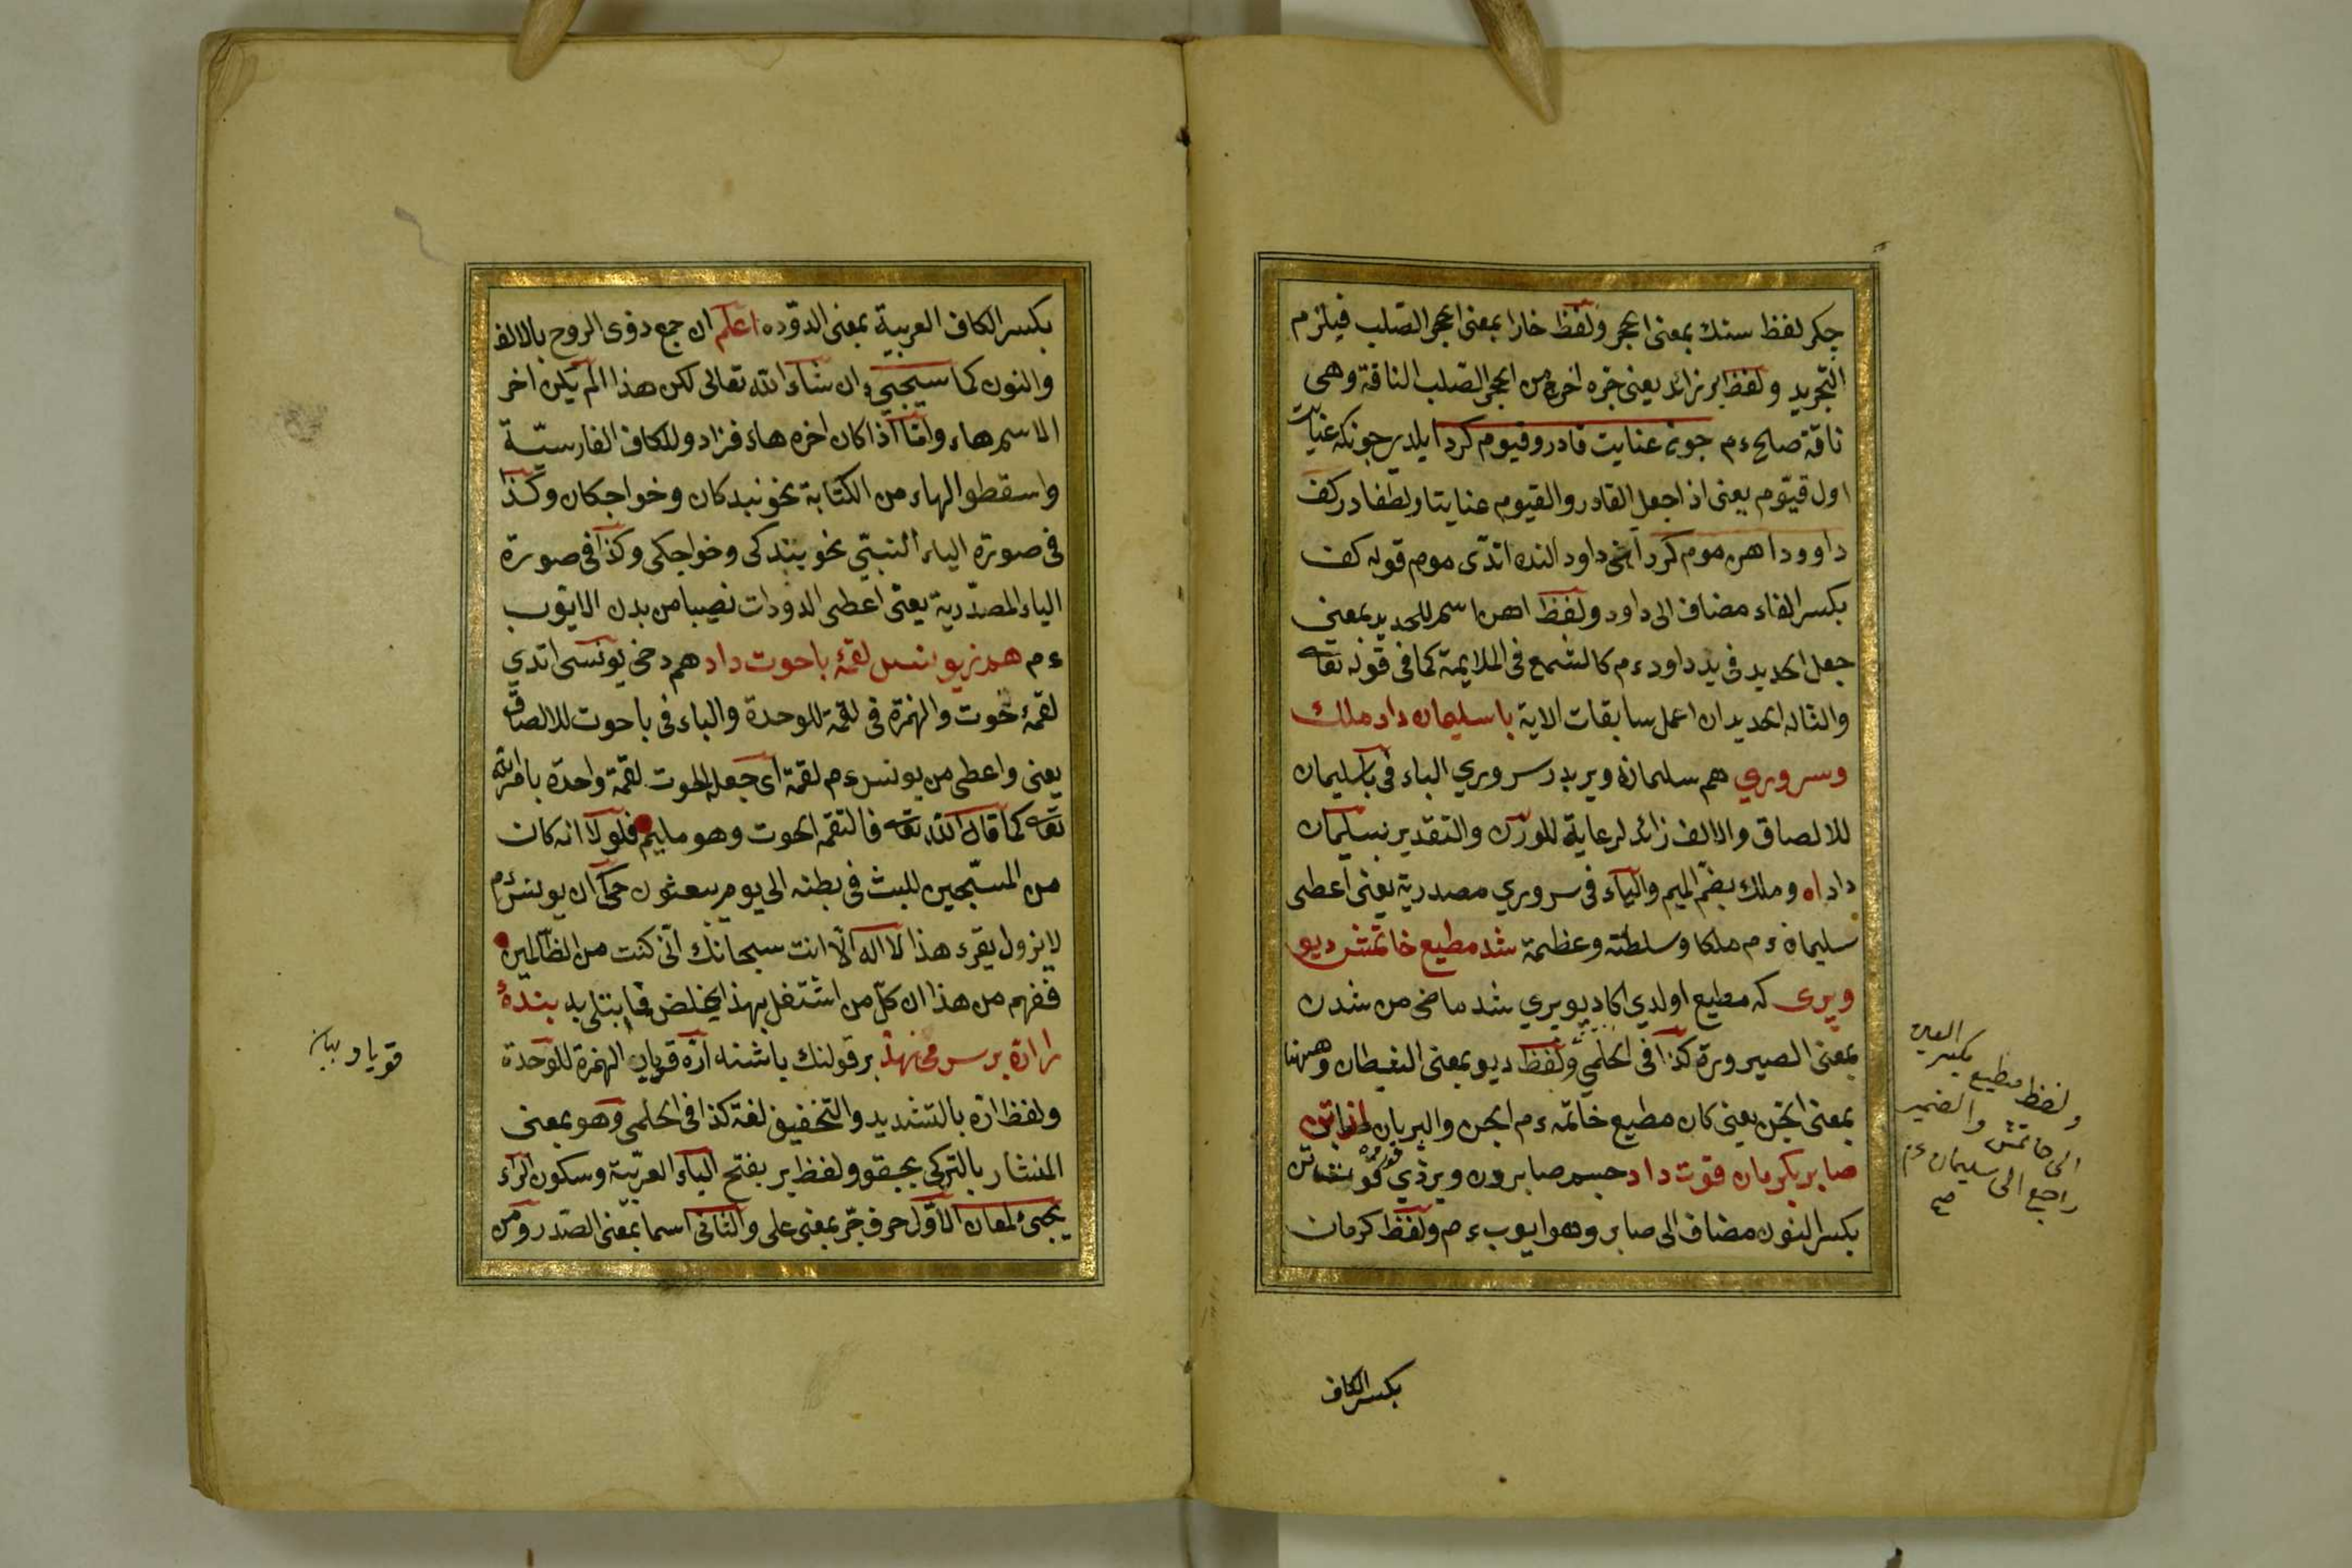 جكر لفظ سنك بمعنى الحجر ولفظ خارا بمعنى الحجر الصلب فيلزم
التجريد ولفظ بر زائد يعنى جره اخرج من الحجر الصلب الناقة وهى
ناقة صالح ءم جونه عنايت قادر وقيوم كرد ايلدير جونكه عنايت
اول قيوم يعنى اذا جعل القادر والقيوم عنايتا ولطفا در كف
داوود اهن موم كرد داود النده اتدى موم قوله كف
بكسر الفاء مضاف الى داود ولفظ اهن اسم للحديد بمعنى
جعل الحديد فى يد داود ءم كالشمع فى الملايمة كما فى قوله تعا
والناله الحديد ان اعمل سابقات الاية با سليمان داد ملك
وسرورى هم سليمانه ويردر سرورى الباء فى باسليمان
للالصاق والالف زائد لرعاية للوزن والتقدير بسليمان
داد اه وملك بضم الميم والياء فى سرورى مصدرية يعنى اعطى
سليمان ءم ملكا وسلطنة وعظيمة شد مطيع خاتمش ديو
وپرى كه مطيع اولدى اكا ديو پرى شد ماضى من شدن
بمعنى الصيرورة كذا فى الحلمى ولفظ ديو بمعنى الشيطان وههنا
بمعنى الجن يعنى كان مطيع خاتمه ءم الجن والپريان از تن
صابر بكرمان قوت داد جسم صابردن ويردى
بكسر النون مضاف الى صابر وهو ايوب ءم ولفظ كرمان
العين
بكسر
ولفظ مطيع
والضمير
الى خاتمش
راجع الى سليمان ءم
صح
بكسر الكاف
بكسر الكاف العربية بمعنى الدوده اعلم ان جمع ذوى الروح بالالف
والنون كما سيجيء ان شاء الله تعالى لكن هذا الم يكن اخر
الاسم هاء واما اذا كان اخره هاء فزادو للكاف الفارسية
واسقطو الهاء من الكتابة نحو نبدكان وخواجكان وكذا
فى صورة الياء النسبى نحو بندكى وخواجكى وكذا فى صورة
الياء المصدرية يعنى اعطى الدودات نصيبا من بدن الايوب
ءم هم زيونس لقمۀ باحوت داد هم دخى يونسى اتدى
لقمۀ حوت والهمزة فى لقمة للوحدة والباء فى باحوت للالصاق
يعنى واعطى من يونس ءم لقمة اى جعله الحوت لقمة واحدة بامر الله
تعا كما قال الله تعا فالتقمه الحوت وهو مليم فلولا انه كان
من المسبحين للبث فى بطنه الى يوم يبعثون حكى ان يونس ءم
لايزول يقرء هذا لا اله الا انت سبحانك انى كنت من الظالمين
ففهم من هذا ان كل من اشتغل بهذا يخلص مما يبتلى به بندۀ
را اره بر سر مى نهد بر قولنك باشنه اره قويار الهمزة للوحدة
ولفظ اره بالتشديد والتخفيف لغة كذا فى الحلمى وهو بمعنى
المنشار بالتركى بجقو ولفظ بر بفتح الباء العربية وسكون الراء
يجئ لمعان الاول حرف جر بمعنى على والثانى اسما بمعنى الصدر ومن